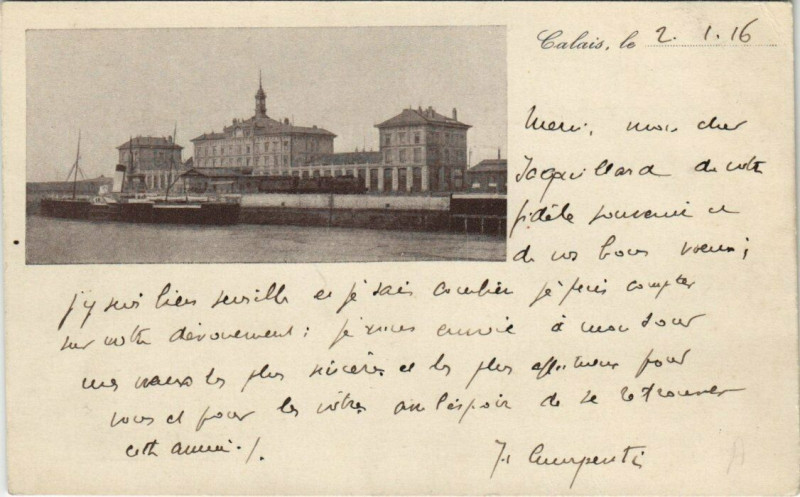 Calais, le 2. 1. 16
Merci, mon cher
de votre
fidèle souvenir et
de vos bons voeux ;
j'y suis bien sensible et je sais combien je puis compter
sur votre dévouement : je vous envoie à mon tour
mes voeux les plus sincères et les plus affectueux pour
vous et pour les vôtres, avec l'espoir de se retrouver
cette année. /.